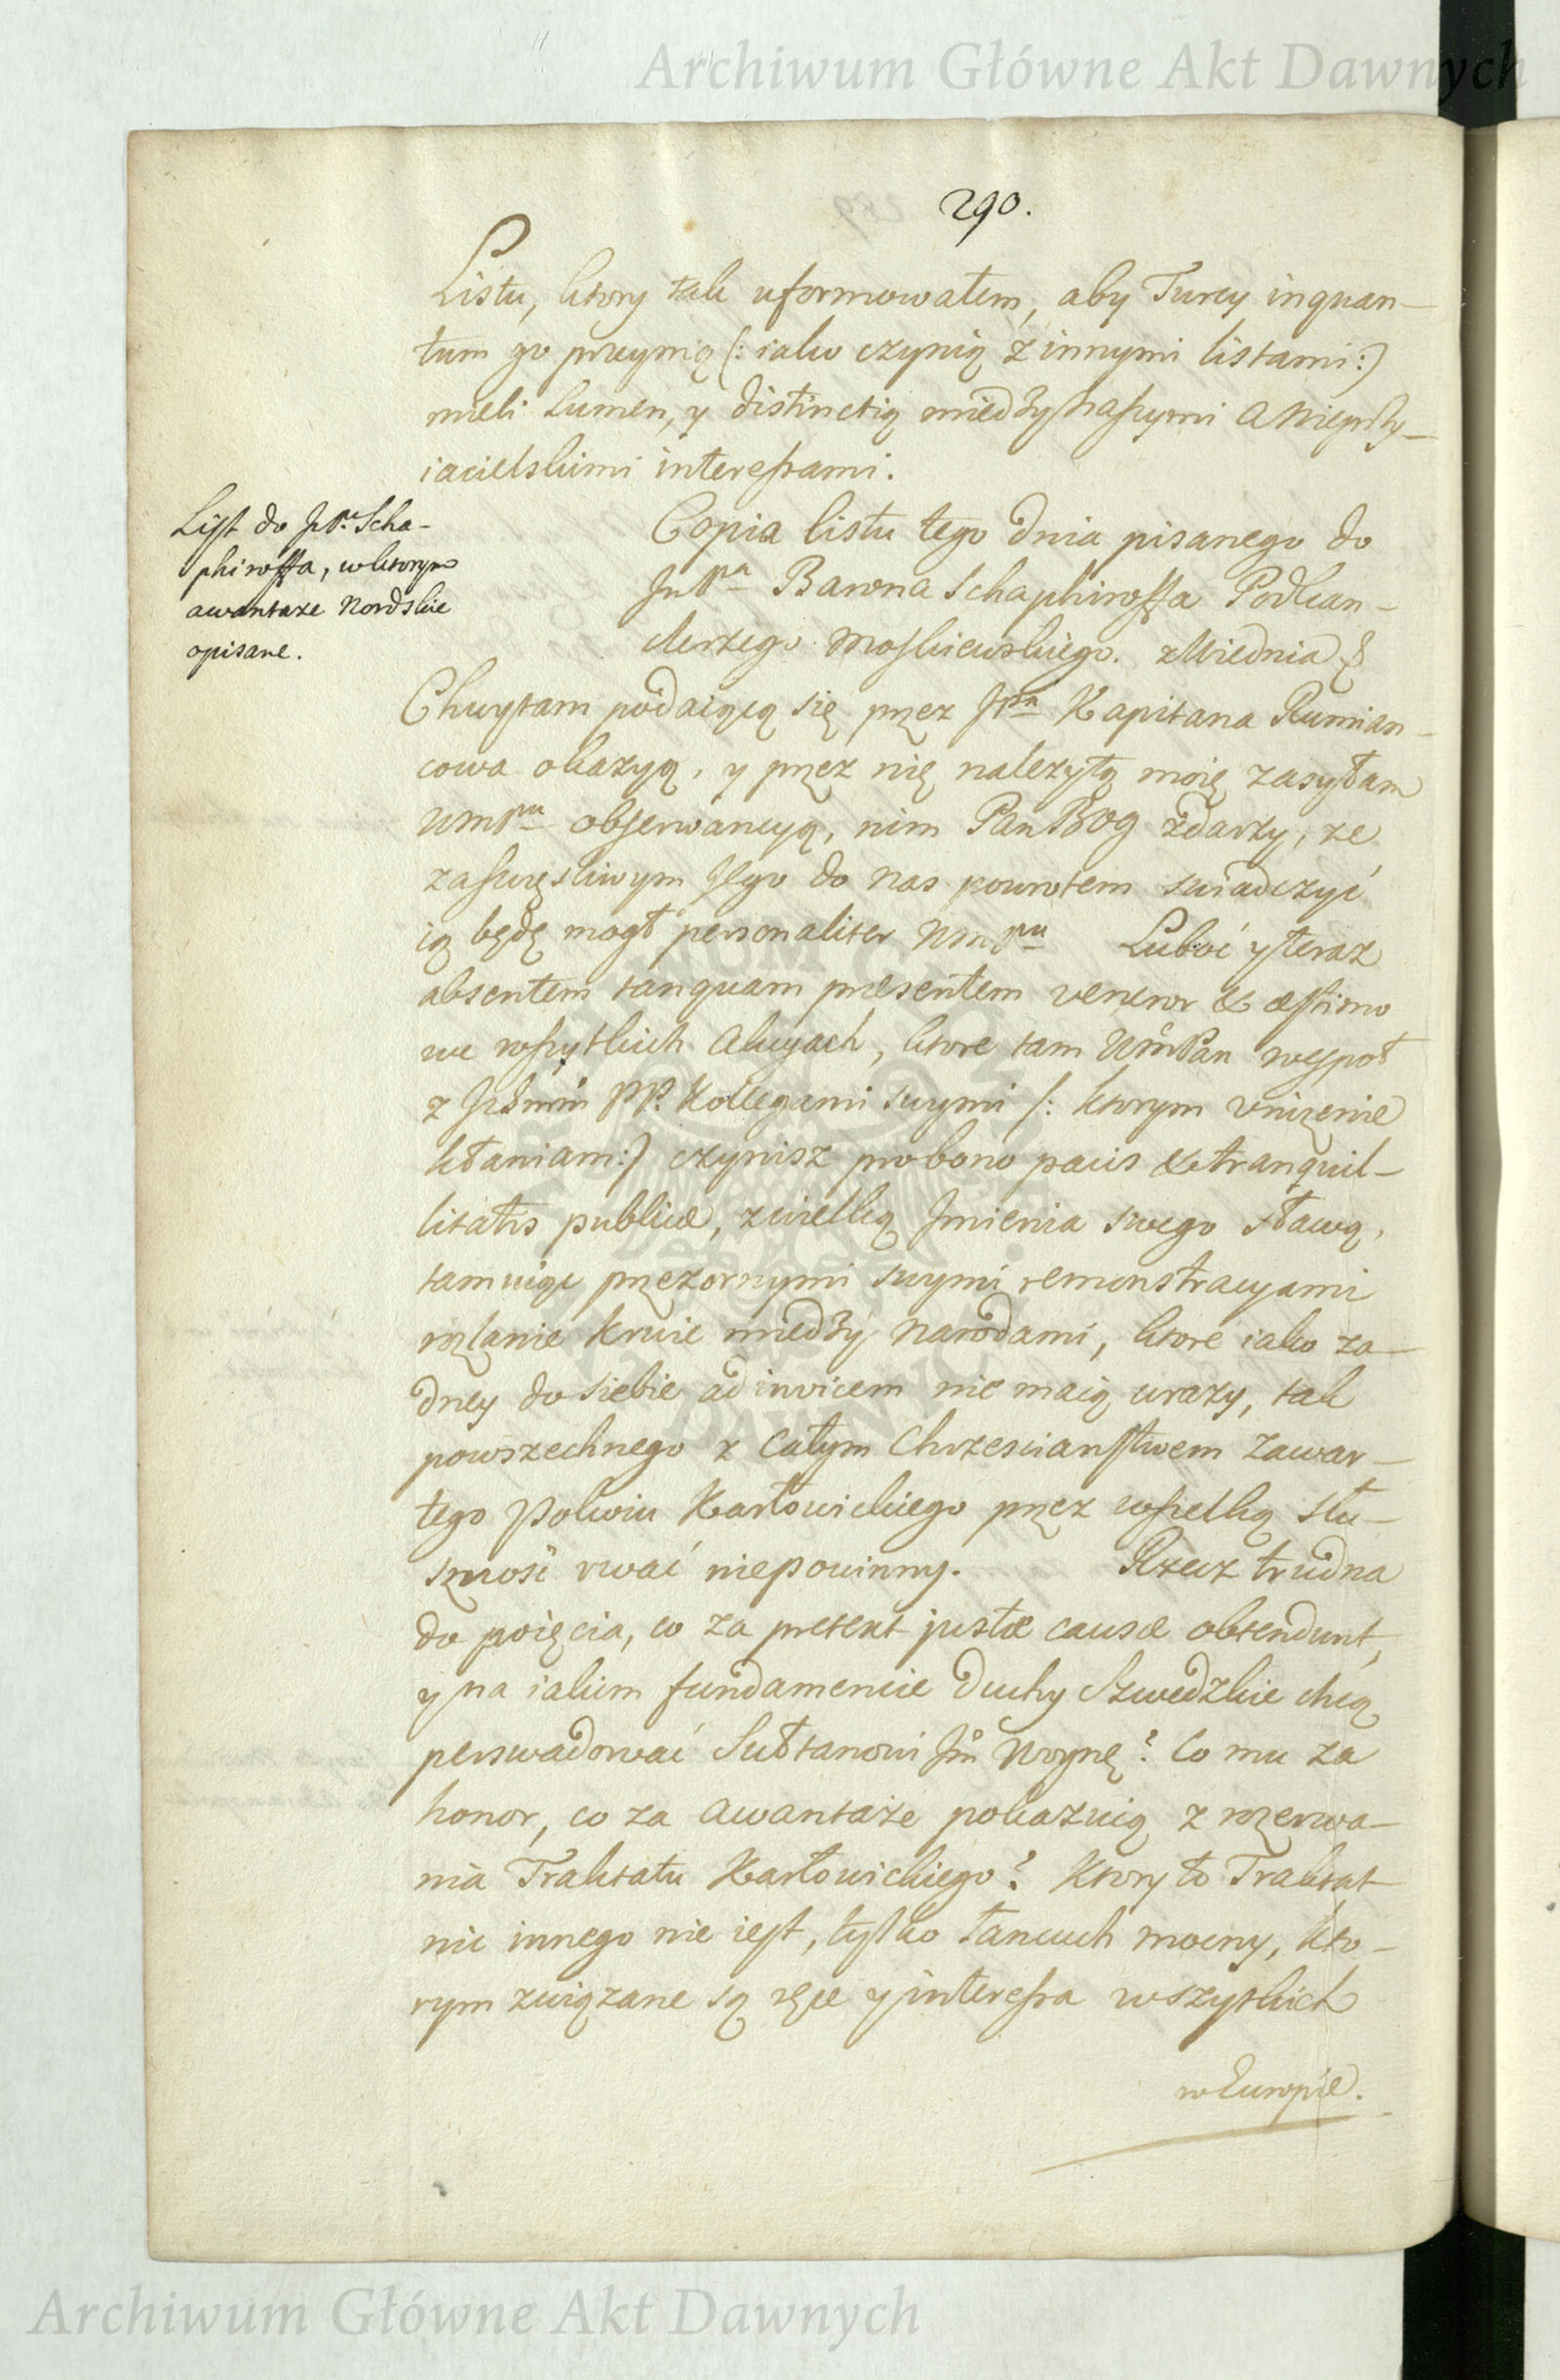 Archiwum Główne Akt Dawnych
290.
Listu, ktory tak uformowałem, aby Turcy inquan-
tum go przeymą (: iako czynią z innymi listami:)
mieli Lumen, y distinctią między naszymi a Nieprzy-
iacielskimi interessami.
List do JP. Scha-
phiroffa, w ktorym
awantaze Nordskie
opisane.
Copia listu tego dnia pisanego do
Barona Schaphiroffa Podkan-
clerzego Moskiewskiego. z Wiednia
Chwytam podaiącą się przez Kapitana Rumian-
cowa okazyą, y przez nię należytą moię zasyłam
WmPnu obserwancyą, nim Pan Bog zdarzy, ze
zaszczęsliwym Jego do nas powrotem swiadczyć
ią będę mogł personaliter WmPnu Luboć y teraz
absentem tanquam præsentem veneror & æstimo
we wszytkich Akcyach, ktore tam WmPan wespoł
z PP. Kollegami swymi (: ktorym vnizenie
kłaniam:) czynisz pro bono pacis & tranquil-
litatis publicæ, z wielką Jmienia swego sławą,
tamuiąc przezornymi swymi remonstracyami
rozlanie krwie między Narodami, ktore iako za-
dney do siebie ad invicem nie maią urazy, tak
powszechnego z Całym Chrzescianstwem zawar-
tego Pokoiu Karłowickiego przez wszelką słu-
szność rwać niepowinny. Rzecz trudna
do poięcia, co za pretext justæ causæ obtendunt,
y na iakim fundamencie Duchy Szwedzkie chcą
perswadować Sułtanowi Jm Woynę? Co mu za
honor, co za Awantaże pokazuią z rozerwa-
nia Traktatu Karłowickiego? Ktory to Traktat
nic innego nie iest, tylko łancuch mocny, kto-
rym związane są ręce y interessa wszytkich
w Europie.
Archiwum Główne Akt Dawnych